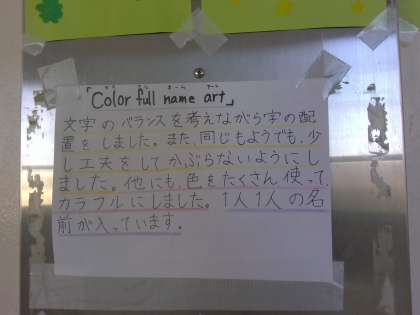 「Color full name art」
文字のバランスを考えながら字の配
置をしました。また、同じもようでも、少
し工夫をしてかぶらないようにし
ました。他にも、色をたくさん使って、
カラフルにしました。1人1人の名
前が入っています。